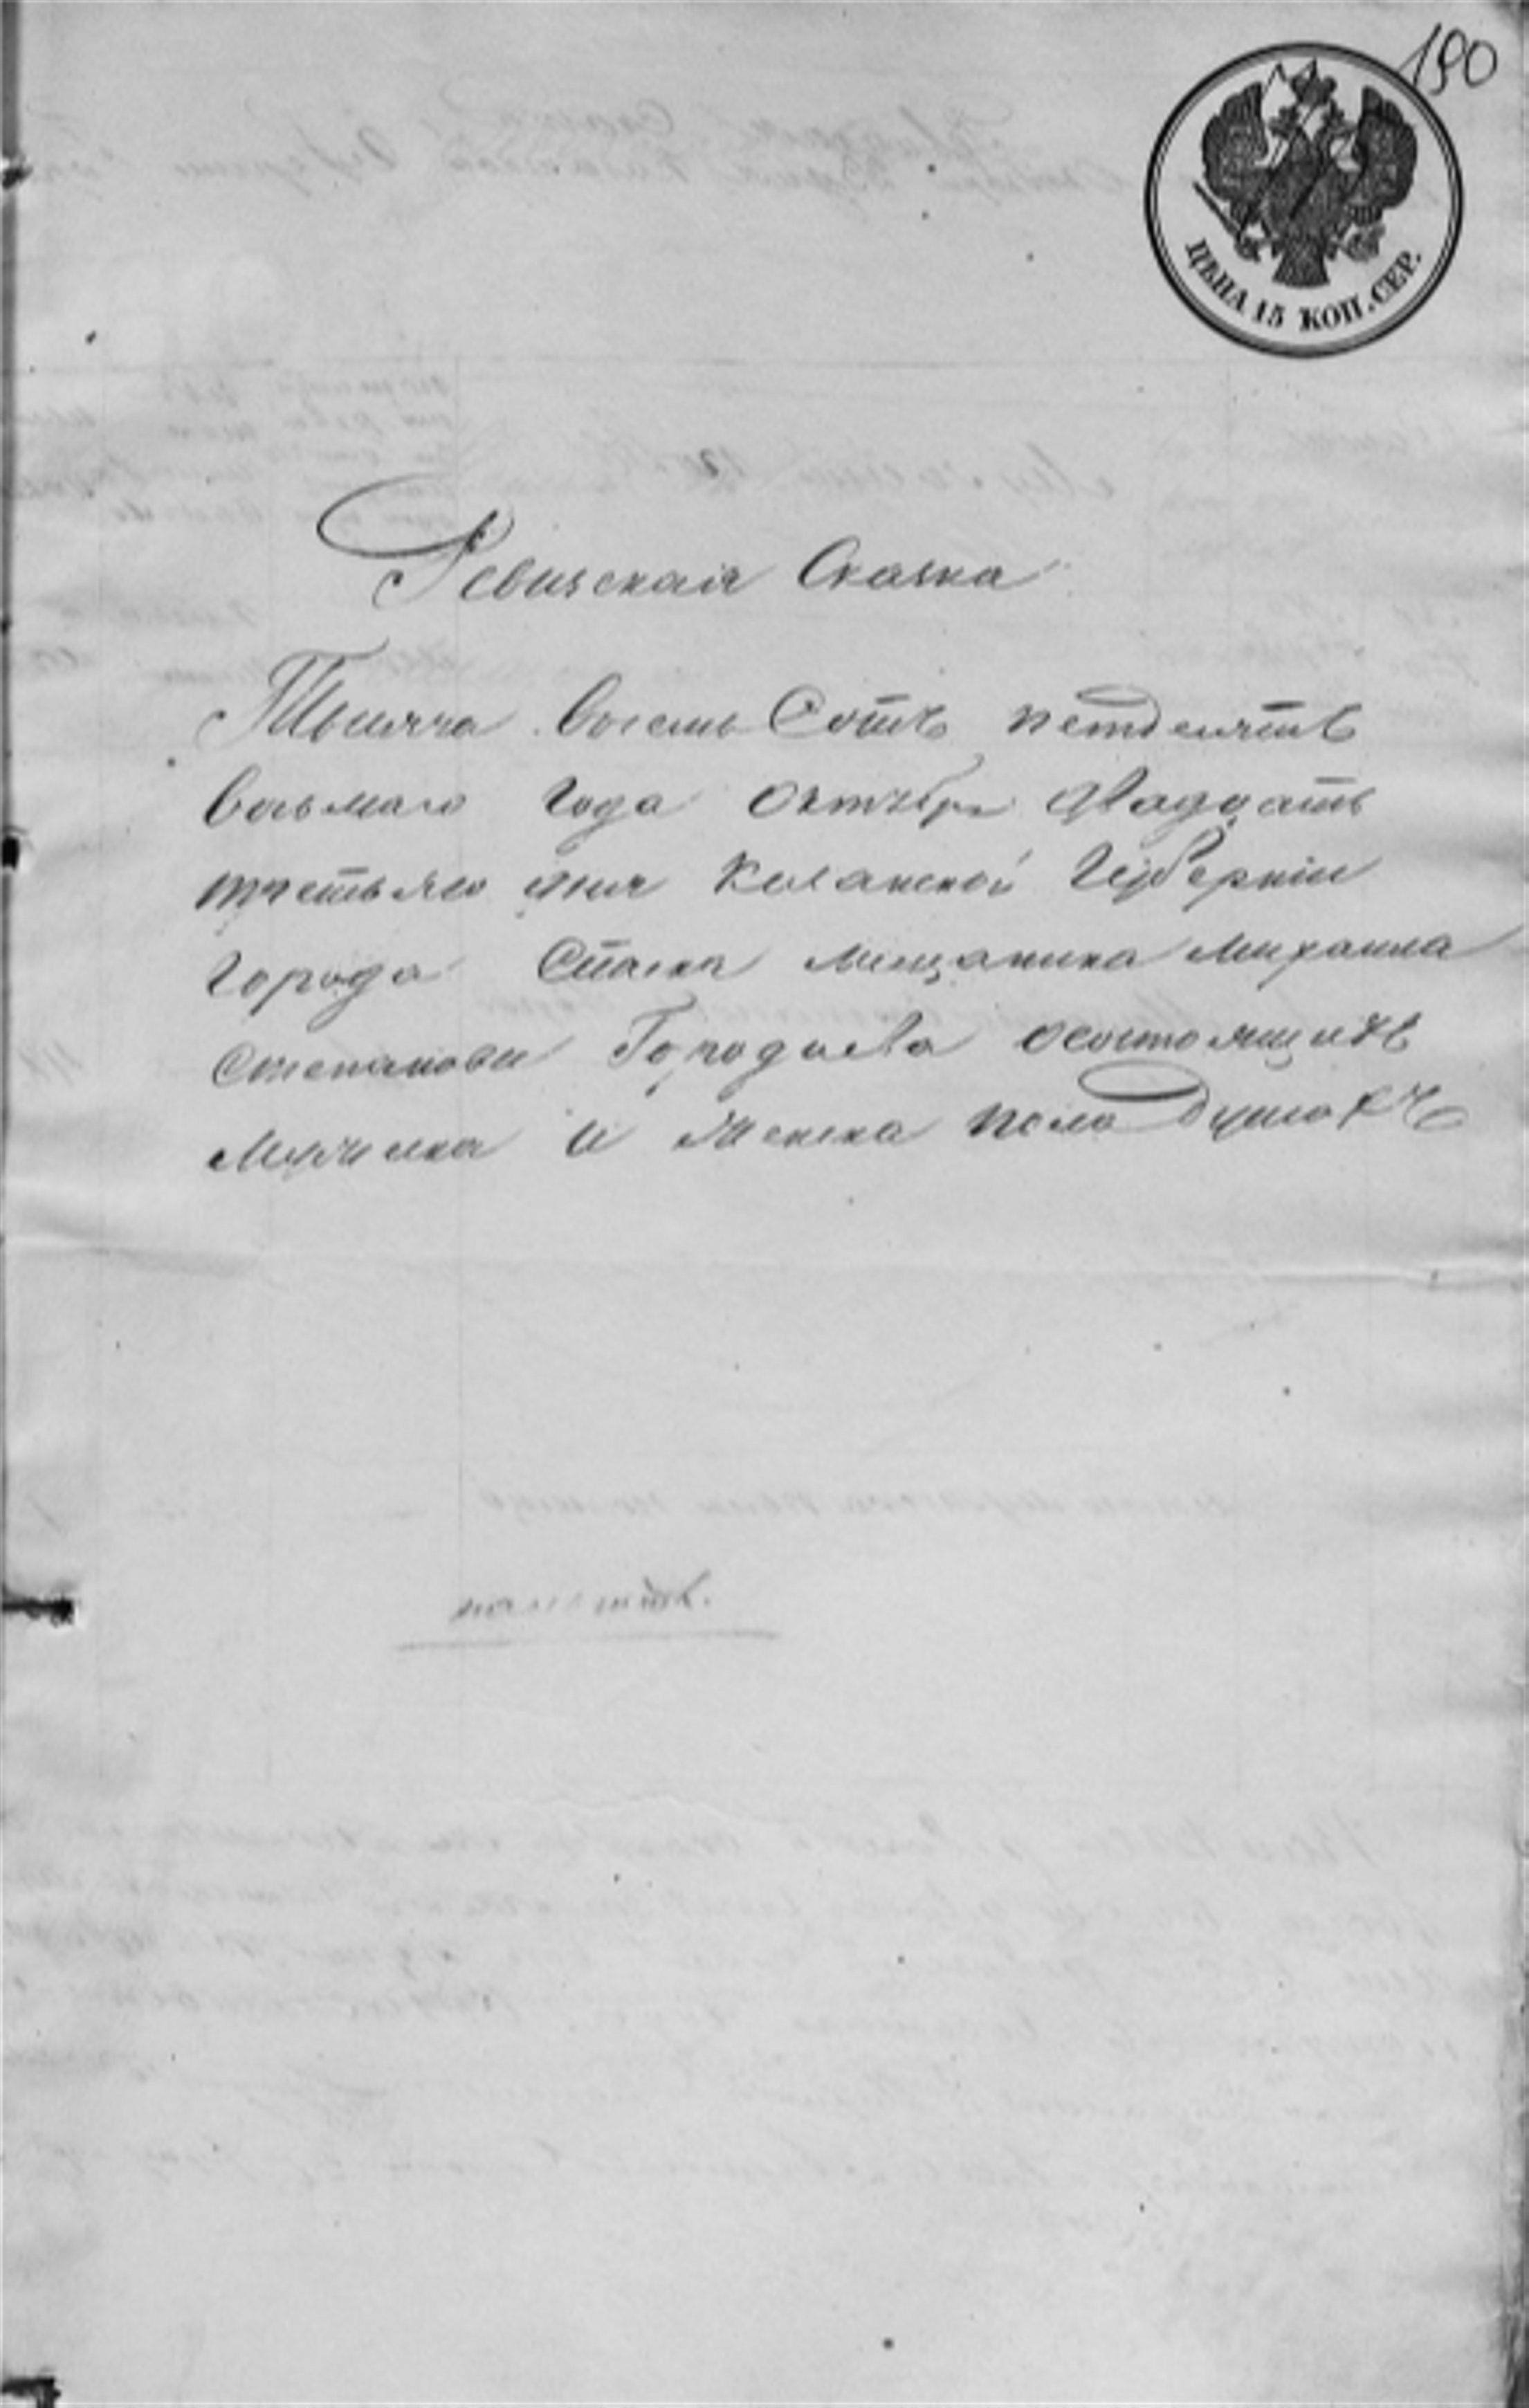 190
ЦѢНА 15 КОП. СЕР.
Ревизская Сказка
Тысяча восемь Сотъ петдесятъ
восьмаго года октября двадцать
третьяго дня Казанской Губерніи
города Спаска мещанина Михаила
Степанова Городцова осостоящихъ
Мужеска и Женска пола душахъ